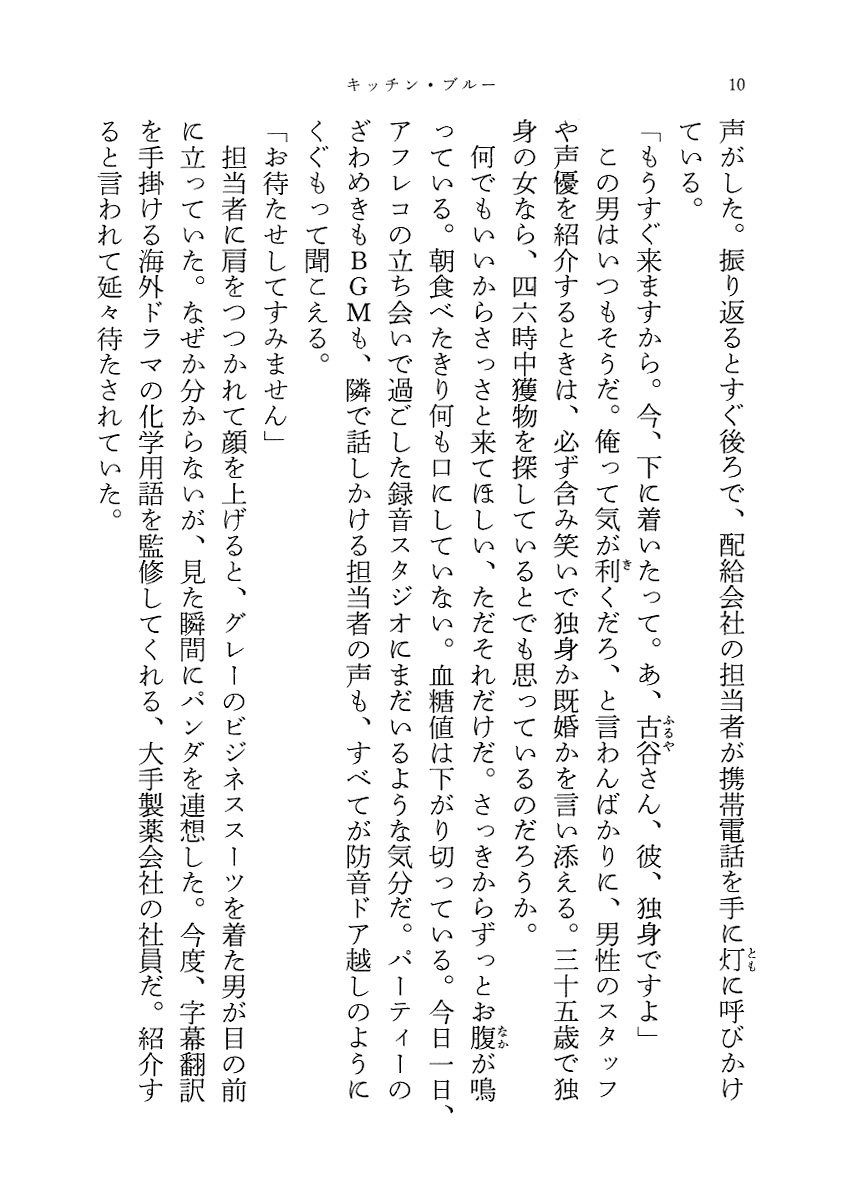 キッチン・ブルー
10
声がした。振り返るとすぐ後ろで、配給会社の担当者が携帯電話を手に灯に呼びかけ
とも
ている。
「もうすぐ来ますから。今、下に着いたって。あ、古谷さん、彼、独身ですよ」
ふるや
この男はいつもそうだ。俺って気が利くだろ、と言わんばかりに、男性のスタッフ
き
や声優を紹介するときは、必ず含み笑いで独身か既婚かを言い添える。三十五歳で独
身の女なら、四六時中獲物を探しているとでも思っているのだろうか。
何でもいいからさっさと来てほしい、ただそれだけだ。さっきからずっとお腹が鳴
なか
っている。朝食べたきり何も口にしていない。血糖値は下がり切っている。今日一日、
アフレコの立ち会いで過ごした録音スタジオにまだいるような気分だ。パーティーの
ざわめきもBGMも、隣で話しかける担当者の声も、すべてが防音ドア越しのように
くぐもって聞こえる。
「お待たせしてすみません」
担当者に肩をつつかれて顔を上げると、グレーのビジネススーツを着た男が目の前
に立っていた。なぜか分からないが、見た瞬間にパンダを連想した。今度、字幕翻訳
を手掛ける海外ドラマの化学用語を監修してくれる、大手製薬会社の社員だ。紹介す
ると言われて延々待たされていた。